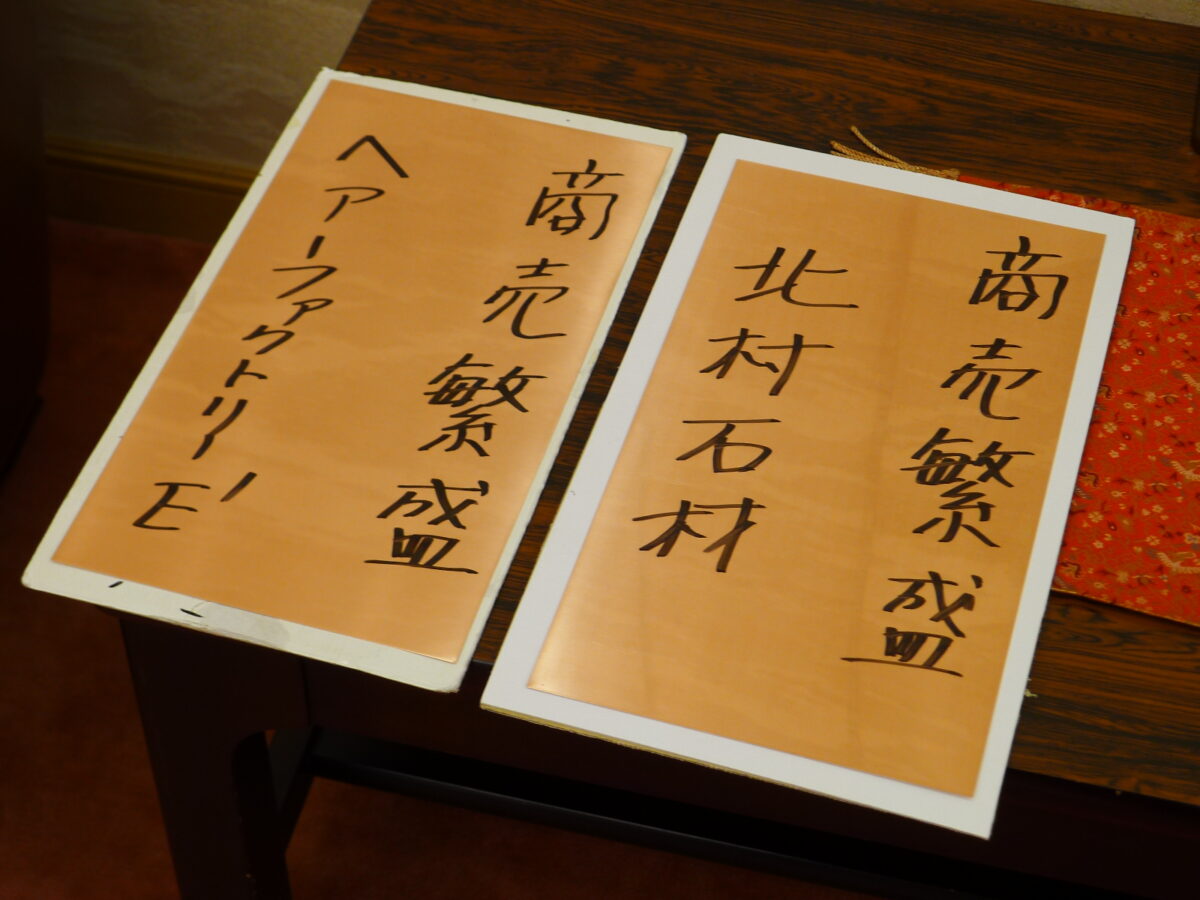 商売繁盛
ヘアーファクトリーE'
商売繁盛
北村石材